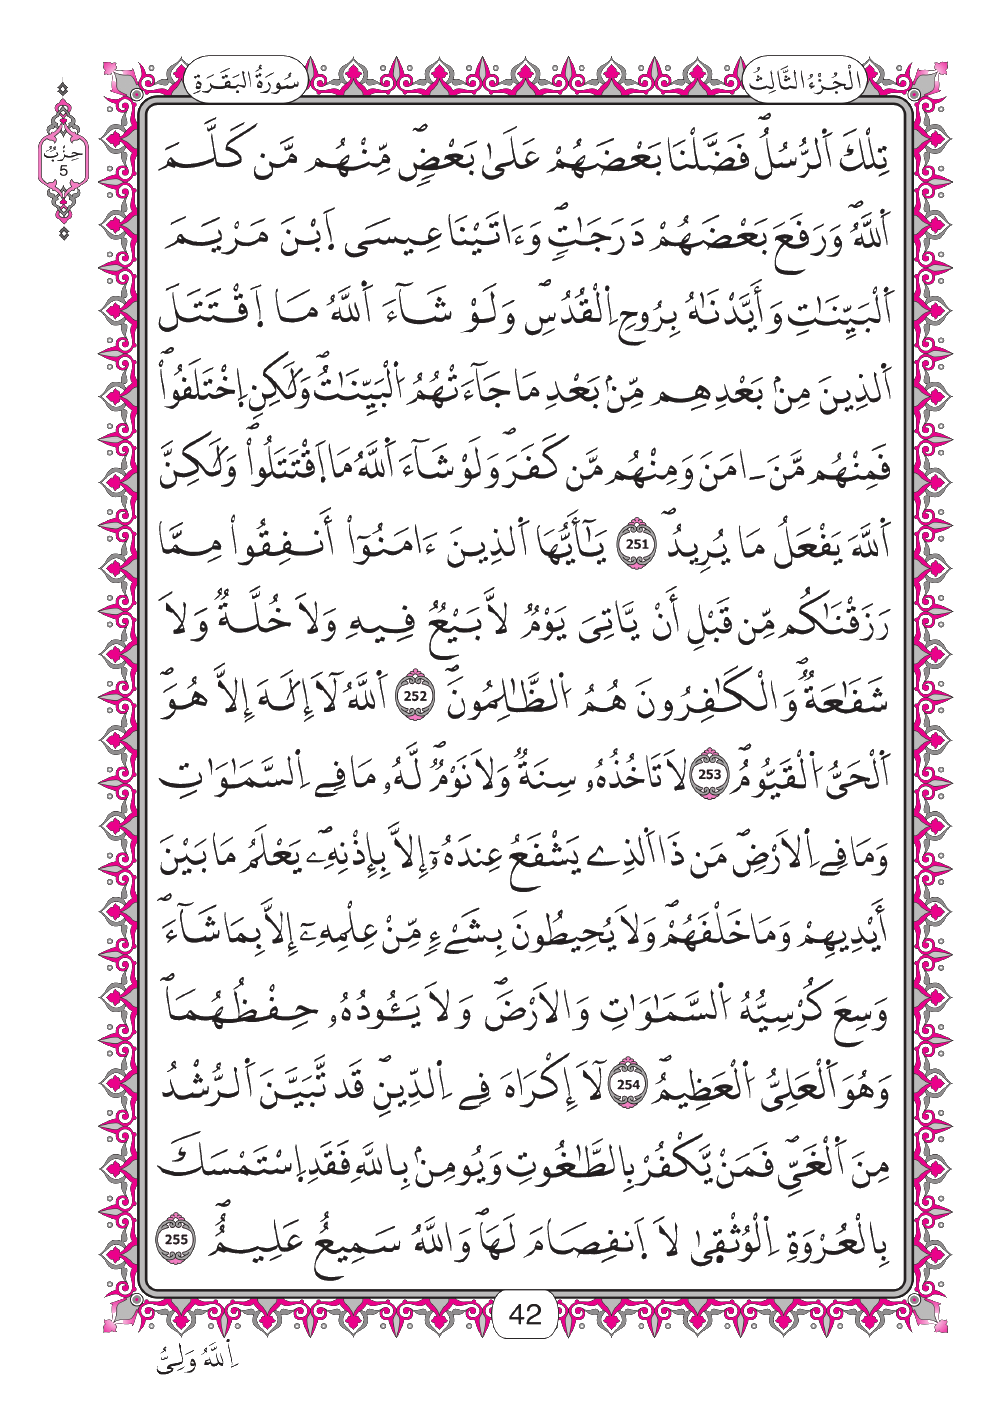 الْجُزْءُ الثَّالِثُ
سُورَةُ البَقَرَةِ
حِزْبٌ
5
تِلْكَ اَ۬لرُّسُلُۖ فَضَّلْنَا بَعْضَهُمْ عَلَىٰ بَعْضٖۖ مِّنْهُم مَّن كَلَّمَ
اَ۬للَّهُۖ وَرَفَعَ بَعْضَهُمْ دَرَجَٰتٖۖ وَءَاتَيْنَا عِيسَى اَ۪بْنَ مَرْيَمَ
اَ۬لْبَيِّنَٰتِ وَأَيَّدْنَٰهُ بِرُوحِ اِ۬لْقُدُسِۖ وَلَوْ شَآءَ اَ۬للَّهُ مَا اَ۪قْتَتَلَ
اَ۬لذِينَ مِنۢ بَعْدِهِم مِّنۢ بَعْدِ مَا جَآءَتْهُمُ اُ۬لْبَيِّنَٰتُۖ وَلَٰكِنِ اِ۪خْتَلَفُواْۖ
فَمِنْهُم مَّنَ ـ امَنَ وَمِنْهُم مَّن كَفَرَۖ وَلَوْ شَآءَ اَ۬للَّهُ مَا اَ۪قْتَتَلُواْۖ وَلَٰكِنَّ
اَ۬للَّهَ يَفْعَلُ مَا يُرِيدُۖ 251 يَٰٓأَيُّهَا اَ۬لذِينَ ءَامَنُوٓاْ أَنفِقُواْ مِمَّا
رَزَقْنَٰكُم مِّن قَبْلِ أَنْ يَّاتِيَ يَوْمٞ لَّا بَيْعٞ فِيهِ وَلَا خُلَّةٞ وَلَا
شَفَٰعَةٞۖ وَالْكَٰفِرُونَ هُمُ اُ۬لظَّٰلِمُونَۖ 252 اَ۬للَّهُ لَآ إِلَٰهَ إِلَّا هُوَۖ
اَ۬لْحَيُّ اُ۬لْقَيُّومُۖ 253 لَا تَاخُذُهُۥ سِنَةٞ وَلَا نَوْمٞۖ لَّهُۥ مَا فِے اِ۬لسَّمَٰوَٰتِ
وَمَا فِے اِ۬لَارْضِۖ مَن ذَا اَ۬لذِے يَشْفَعُ عِندَهُۥٓ إِلَّا بِإِذْنِهِۦۖ يَعْلَمُ مَا بَيْنَ
أَيْدِيهِمْ وَمَا خَلْفَهُمْۖ وَلَا يُحِيطُونَ بِشَےْءٖ مِّنْ عِلْمِهِۦٓ إِلَّا بِمَا شَآءَۖ
وَسِعَ كُرْسِيُّهُ اُ۬لسَّمَٰوَٰتِ وَالَارْضَۖ وَلَا يَـُٔودُهُۥ حِفْظُهُمَاۖ
وَهُوَ اَ۬لْعَلِيُّ اُ۬لْعَظِيمُۖ 254 لَآ إِكْرَاهَ فِے اِ۬لدِّينِۖ قَد تَّبَيَّنَ اَ۬لرُّشْدُ
مِنَ اَ۬لْغَيِّۖ فَمَنْ يَّكْفُرْ بِالطَّٰغُوتِ وَيُومِنۢ بِاللَّهِ فَقَدِ اِ۪سْتَمْسَكَ
بِالْعُرْوَةِ اِ۬لْوُثْقَىٰ لَا اَ۪نفِصَامَ لَهَاۖ وَاللَّهُ سَمِيعٌ عَلِيمٌۖ 255
42
اِ۬للَّهُ وَلِيُّ